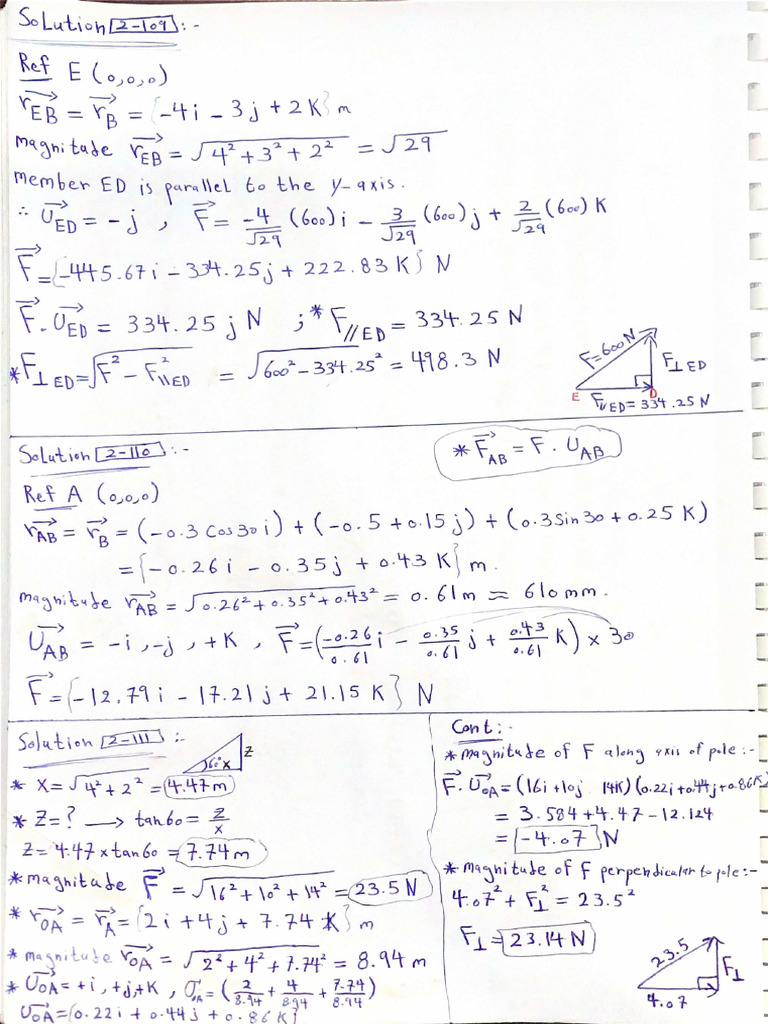 Solution 2-109 :-
Ref E (0,0,0)
r⃗EB = r⃗B = {-4i - 3j + 2K} m
magnitude r⃗EB = √(4² + 3² + 2²) = √29
member ED is parallel to the y-axis.
∴ U⃗ED = -j , F⃗ = -4/√29 (600)i - 3/√29 (600)j + 2/√29 (600) K
F⃗ = {-445.67i - 334.25j + 222.83 K} N
F⃗ . U⃗ED = 334.25 j N ; * F//ED = 334.25 N
* F⊥ED = √(F² - F²//ED) = √(600² - 334.25²) = 498.3 N
F=600N
F⊥ED
E
D
F//ED = 334.25 N
Solution 2-110 :-
* F⃗AB = F . UAB
Ref A (0,0,0)
r⃗AB = r⃗B = (-0.3 Cos30 i) + (-0.5 + 0.15 j) + (0.3 Sin 30 + 0.25 K)
= {-0.26i - 0.35j + 0.43 K} m.
magnitude r⃗AB = √(0.26² + 0.35² + 0.43²) = 0.61m ≈ 610mm.
U⃗AB = -i, -j, +K , F⃗ = (-0.26/0.61 i - 0.35/0.61 j + 0.43/0.61 K) × 30
F⃗ = {-12.79i - 17.21j + 21.15 K} N
Solution 2-111 :-
60°
x
Z
* X = √(4² + 2²) = 4.47m
* Z = ? → tan60 = Z/x
Z = 4.47 x tan60 = 7.74m
* magnitude F⃗ = √(16² + 10² + 14²) = 23.5 N
* r⃗OA = r⃗A = {2i + 4j + 7.74 K} m
* magnitude r⃗OA = √(2² + 4² + 7.74²) = 8.94 m
* U⃗OA = +i, +j, +K , U⃗OA = (2/8.94 + 4/8.94 + 7.74/8.94)
U⃗OA = {0.22i + 0.44j + 0.86 K}
Cont :-
* magnitude of F along axis of pole :-
F⃗ . U⃗OA = (16i + 10j 14K)(0.22i + 0.44j + 0.86K)
= 3.584 + 4.47 - 12.124
= -4.07 N
* magnitude of F perpendicular to pole :-
4.07² + F⊥² = 23.5²
F⊥ = 23.14 N
23.5
F⊥
4.07